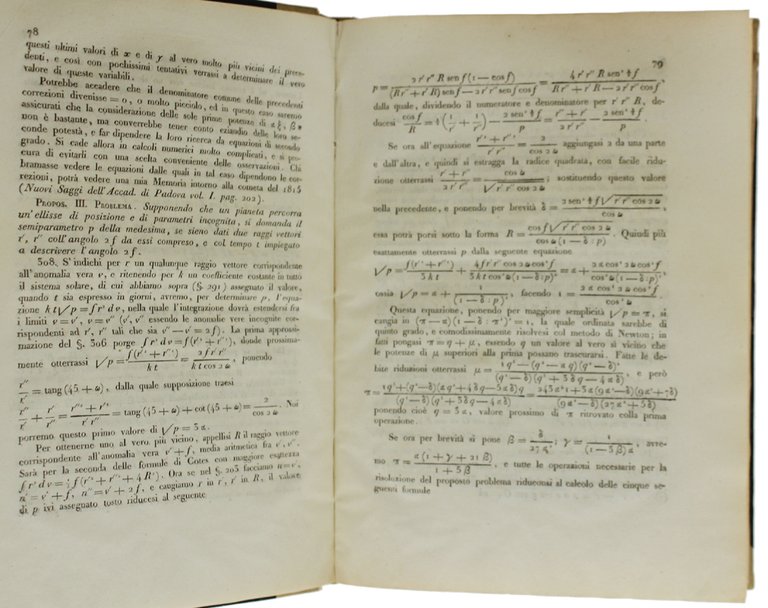 78
questi ultimi valori di x e di y al vero molto più vicini dei prece-
denti, e così con pochissimi tentativi verrassi a determinare il vero
valore di queste variabili.
Potrebbe accadere che il denominatore comune delle precedenti
correzioni divenisse = 0, o molto picciolo, ed in questo caso saremo
assicurati che la considerazione delle sole prime potenze di
non è bastante, ma converrebbe tener conto eziandio delle loro se-
conde potestà, e far dipendere la loro ricerca da equazioni di secondo
grado. Si cade allora in calcoli numerici molto complicati, e si pro-
cura di evitarli con una scelta conveniente delle osservazioni. Chi
bramasse vedere le equazioni dalle quali in tal caso dipendono le cor-
rezioni, potrà vedere una mia Memoria intorno alla cometa del 1815
(Nuovi Saggi dell'Accad. di Padova vol. I. pag. 202).
PROPOS. III. PROBLEMA. Supponendo che un pianeta percorra
un'ellisse di posizione e di parametri incognita, si domanda il
semiparametro p della medesima, se sieno dati due raggi vettori
r', r'' coll'angolo 2 f da essi compreso, e col tempo t impiegato
a descrivere l'angolo 2 f.
308. S'indichi per r un qualunque raggio vettore corrispondente
all'anomalia vera v, e ritenendo per k un coefficiente costante in tutto
il sistema solare, di cui abbiamo sopra (§. 291) assegnato il valore,
quando t sia espresso in giorni, avremo, per determinare p, l'equa-
zione k t √p = ∫ r² d v, nella quale l'integrazione dovrà estendersi fra
i limiti v = v', v = v'' (v', v'' essendo le anomalie vere incognite cor-
rispondenti ad r', r'' tali che sia v'' — v' = 2 f). La prima approssi-
mazione del §. 306 porge ∫ r² d v = f (r'² + r''²), donde prossima-
mente otterrassi √p = f (r'² + r''²) / k t = 2 f r' r'' / k t cos. 2 ω, ponendo
r'' / r' = tang (45 + ω), dalla quale supposizione traesi
r'' / r' + r' / r'' = (r''² + r'²) / r' r'' = tang (45 + ω) + cot (45 + ω) = 2 / cos 2 ω. Noi
porremo questo primo valore di √p = 3 α.
Per ottenerne uno al vero più vicino, appellisi R il raggio vettore
corrispondente all'anomalia vera v' + f, media aritmetica fra v', v''.
Sarà per la seconda delle formule di Cotes con maggiore esattezza
∫ r² d v = ⅓ f (r'² + r''² + 4 R²). Ora se nel §. 203 facciamo u = v',
u' = v' + f, u'' = v' + 2 f, e cangiamo r in r', r' in R, il valore
di p ivi assegnato tosto riducesi al seguente
79
p = 2 r' r'' R sen f (1 — cos f) / ((R r'' + r' R) sen f — 2 r' r'' sen f cos f) = 4 r' r'' R sen² ½ f / (R r' + R r'' — 2 r' r'' cos f),
dalla quale, dividendo il numeratore e denominatore per r' r'' R, de-
ducesi cos f / R = ½ (1 / r' + 1 / r'') — 2 sen² ½ f / p = (r'' + r') / 2 r' r'' — 2 sen² ½ f / p.
Se ora all'equazione (r'² + r''²) / r' r'' = 2 / cos 2 ω aggiungasi 2 da una parte
e dall'altra, e quindi si estragga la radice quadrata, con facile ridu-
zione otterrassi (r' + r'') / 2 r' r'' = cos ω / √(r' r'' cos 2 ω); sostituendo questo valore
nella precedente, e ponendo per brevità δ = 2 sen² ½ f √(r' r'' cos 2 ω) / cos ω,
essa potrà porsi sotto la forma R = cos f √(r' r'' cos 2 ω) / cos ω (1 — δ : p). Quindi più
esattamente otterrassi p dalla seguente equazione
√p = f (r'² + r''²) / 3 k t + 4 f r' r'' cos 2 ω cos² f / 3 k t cos² ω (1 — δ : p)² = α + 2 α cos² 2 ω cos² f / cos² ω (1 — δ : p)²,
ossia √p = α + ε / (1 — δ : p)², facendo ε = 2 α cos² 2 ω cos² f / cos² ω.
Questa equazione, ponendo per maggiore semplicità √p = π, si
cangia in (π — α) (1 — δ : π²)² = ε, la quale ordinata sarebbe di
quinto grado, e comodissimamente risolvesi col metodo di Newton; in
fatti pongasi π = q + μ, essendo q un valore al vero sì vicino che
le potenze di μ superiori alla prima possano trascurarsi. Fatte le de-
bite riduzioni otterrassi
e però
ponendo cioè q = 3 α, valore prossimo di π ritrovato colla prima
operazione.
Se ora per brevità si pone
avre-
mo
e tutte le operazioni necessarie per la
risoluzione del proposto problema riduconsi al calcolo delle cinque se-
guenti formule